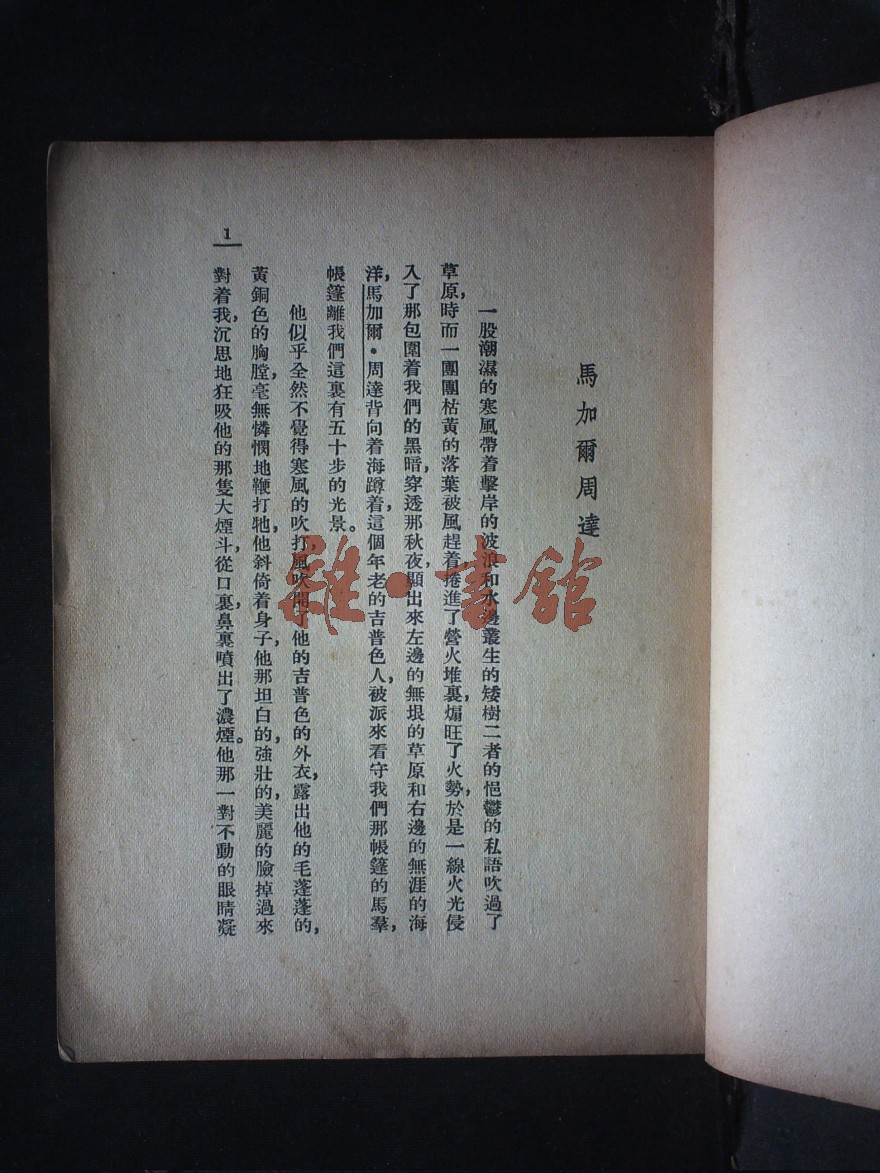 馬加爾周達
一股潮濕的寒風帶着擊岸的波浪和水邊叢生的矮樹二者的悒鬱的私語吹過了
草原，時而一團團枯黃的落葉被風趕着捲進了營火堆裏，煽旺了火勢，於是一線火光侵
入了那包圍着我們的黑暗，穿透那秋夜，顯出來左邊的無垠的草原和右邊的無涯的海
洋，馬加爾·周達背向着海蹲着，這個年老的吉普色人，被派來看守我們那帳篷的馬羣，
帳篷離我們這裏有五十步的光景。
他似乎全然不覺得寒風的吹打，風吹開了他的吉普色的外衣，露出他的毛蓬蓬的，
黃銅色的胸膛，毫無憐憫地鞭打牠，他斜倚着身子，他那坦白的，強壯的，美麗的臉掉過來
對着我，沉思地狂吸他的那隻大煙斗，從口裏，鼻裏噴出了濃煙。他那一對不動的眼睛凝
1
雜·書館